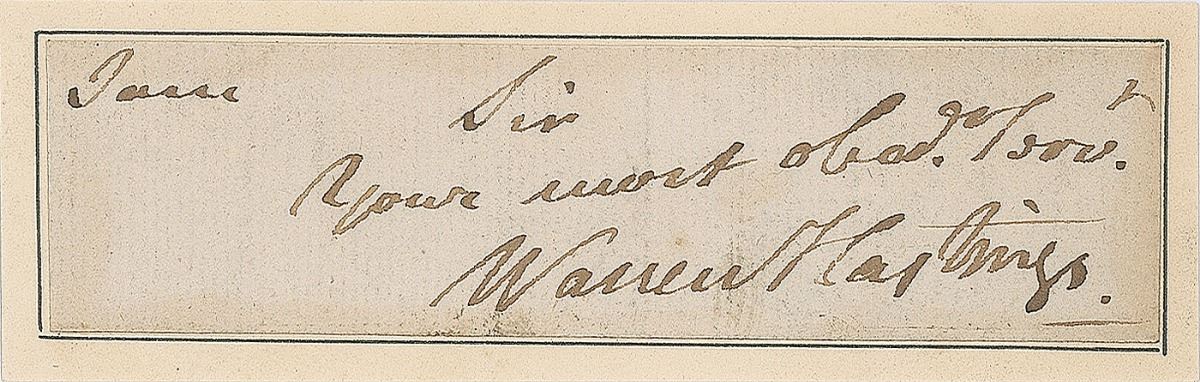 I am
Sir
Your most obed.t Serv.t
Warren Hastings.